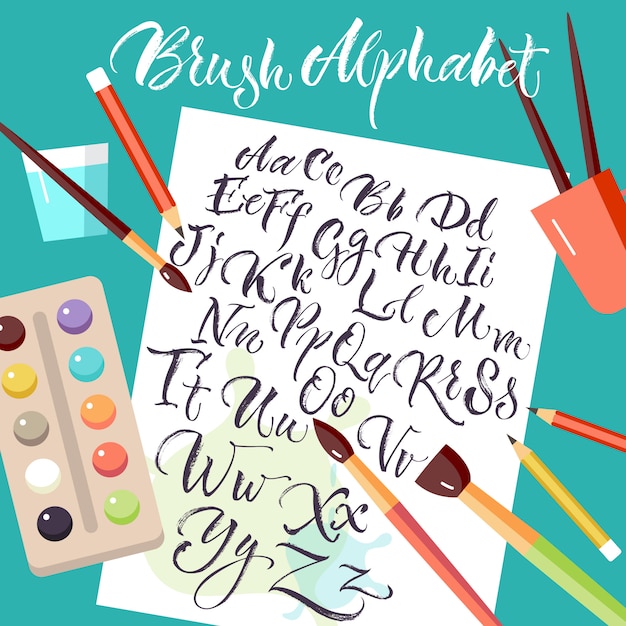 Brush Alphabet
Aa Cc Bb Dd
Ee Ff Gg Hh Ii
Jj Kk Ll Mm
Nn Pp Qq Rr Ss
Tt Uu Oo Vv
Ww Xx
Yy Zz